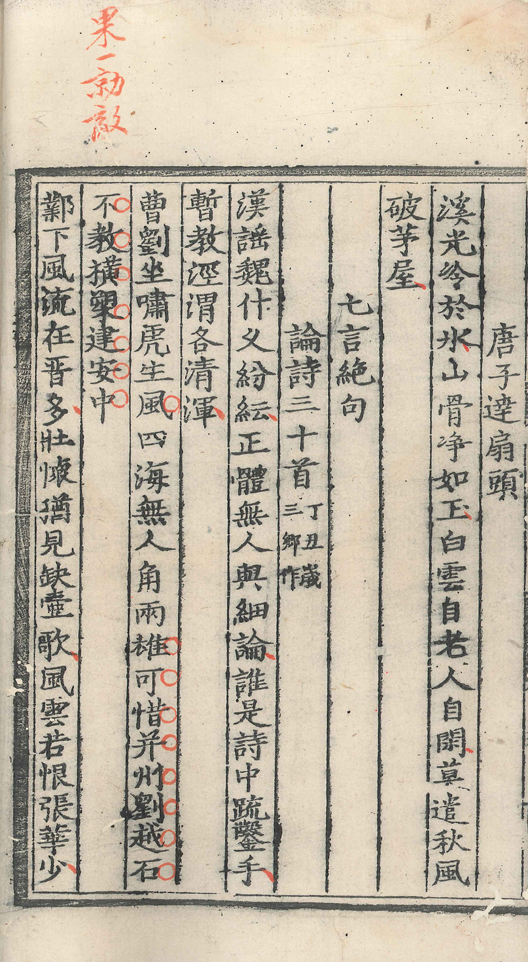 果一勍敵
唐子達扇頭
溪光冷於氷山骨净如玉白雲自老人自閑莫遣秋風
破茅屋
七言絶句
論詩三十首丁丑歲三鄉作
漢謡魏什乆紛紜正體無人與細論誰是詩中䟽鑿手
暫教涇渭各清渾
曹劉坐嘯虎生風四海無人角兩雄可惜并州劉越石
不教横槊建安中
鄴下風流在晋多壯懷猶見缺壷歌風雲若恨張華少